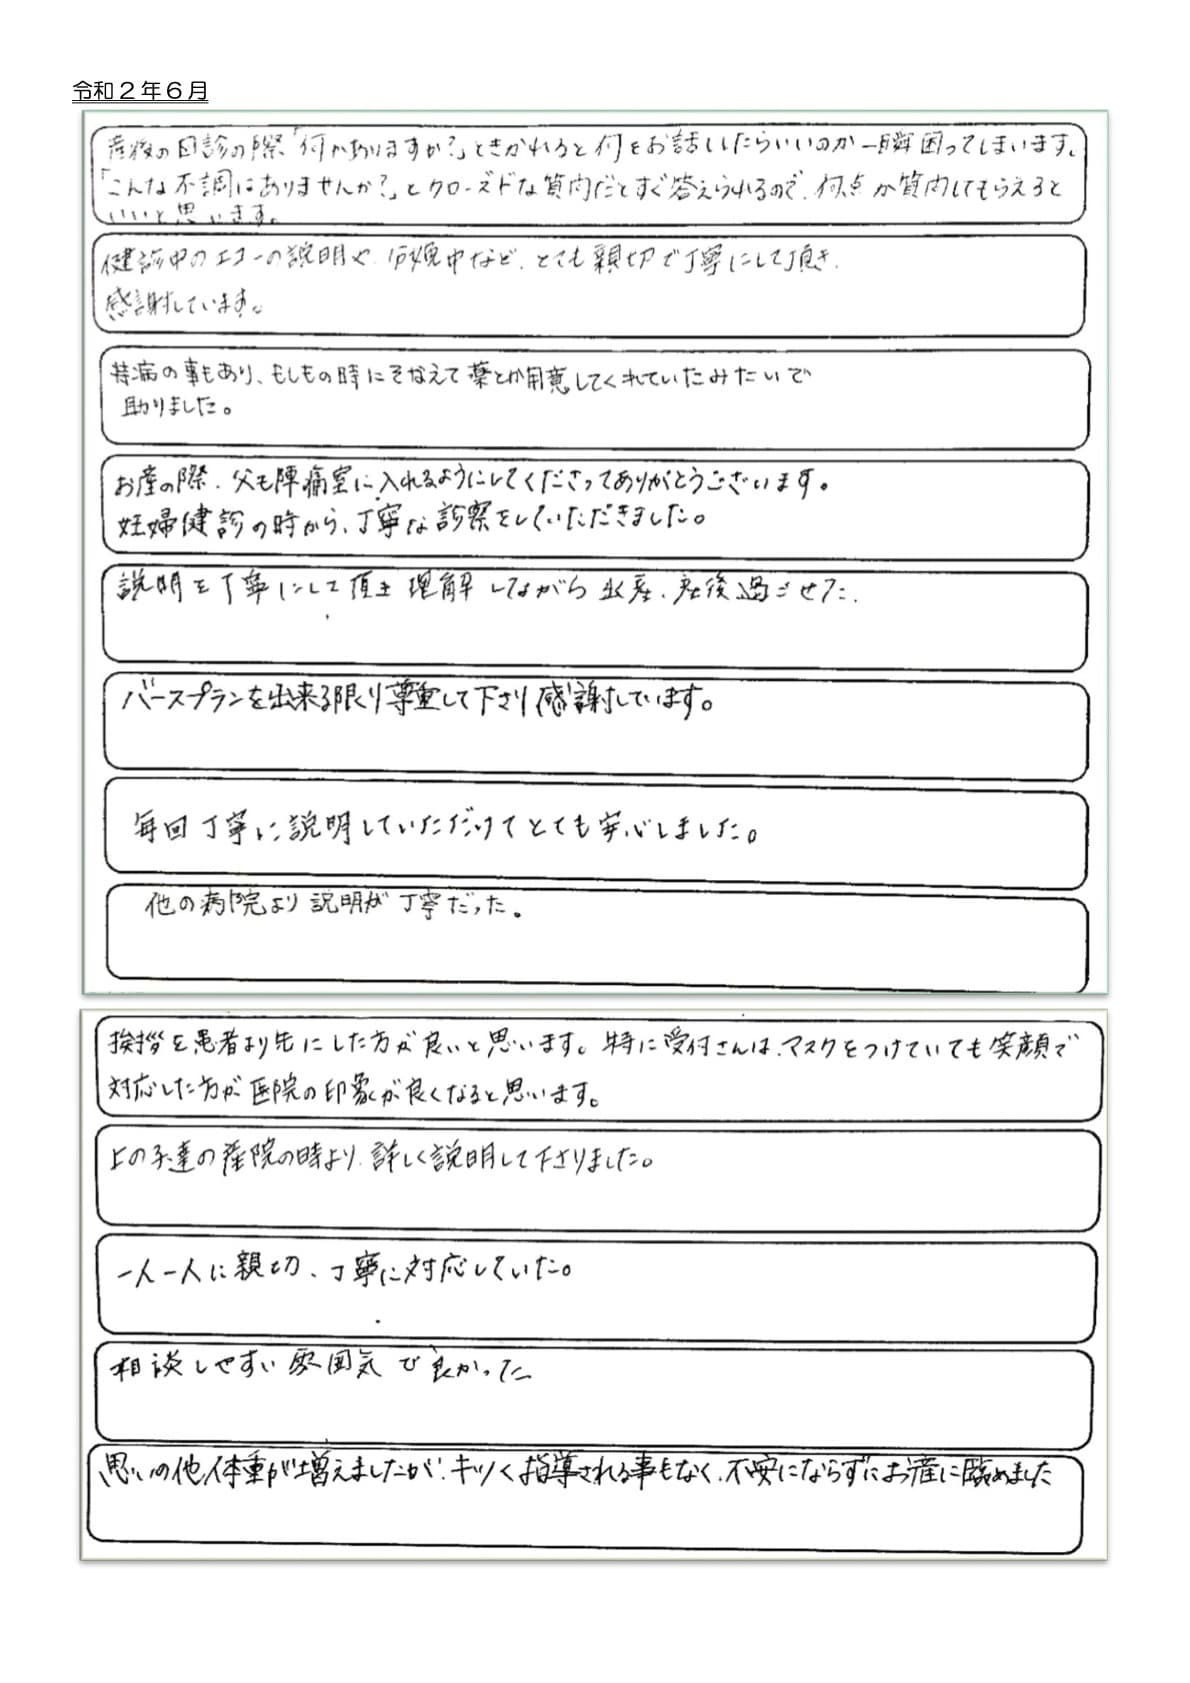 令和２年６月
産後の回診の際「何かありますか？」ときかれると何をお話ししたらいいのか一瞬困ってしまいます。
「こんな不調はありませんか？」とクローズドな質問だとすぐ答えられるので、何点か質問してもらえると
いいと思います。
健診中のエコーの説明や、分娩中など、とても親切で丁寧にして頂き、
感謝しています。
持病の事もあり、もしもの時にそなえて薬とか用意してくれていたみたいで
助りました。
お産の際、父も陣痛室に入れるようにしてくださってありがとうございます。
妊婦健診の時から、丁寧な診察をしていただきました。
説明を丁寧にして頂き理解しながら出産、産後過ごせた。
バースプランを出来る限り尊重して下さり感謝しています。
毎回丁寧に説明していただけてとても安心しました。
他の病院より説明が丁寧だった。
挨拶を患者より先にした方が良いと思います。特に受付さんは、マスクをつけていても笑顔で
対応した方が医院の印象が良くなると思います。
上の子達の産院の時より、詳しく説明して下さりました。
一人一人に親切、丁寧に対応していた。
相談しやすい雰囲気で良かった
思いの他体重が増えましたが、キツく指導される事もなく、不安にならずにお産に臨めました